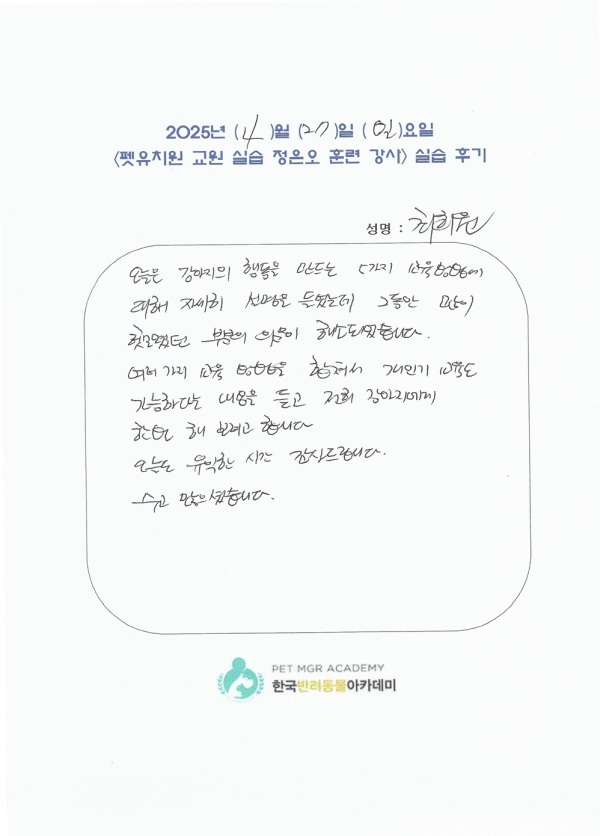 2025년 (4)월 (27)일 (일)요일
<펫유치원 교원 실습 정은오 훈련 강사> 실습 후기
성명 : 최화원
오늘은 강아지의 행동을 만드는 5가지 교육 방법에
대해 자세히 설명을 들었는데 그동안 많이
헷갈렸던 부분의 의문이 해소되었습니다.
여러가지 교육 방법을 합쳐서 개인기 교육도
가능하다는 내용을 듣고 저희 강아지에게
한번 해 보려고 합니다
오늘도 유익한 시간 감사드립니다.
수고 많으셨습니다.
PET MGR ACADEMY
한국반려동물아카데미